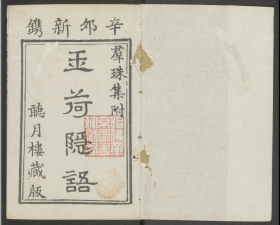 辛卯新鐫
羣珠集附
玉荷隱語
聽月樓藏版